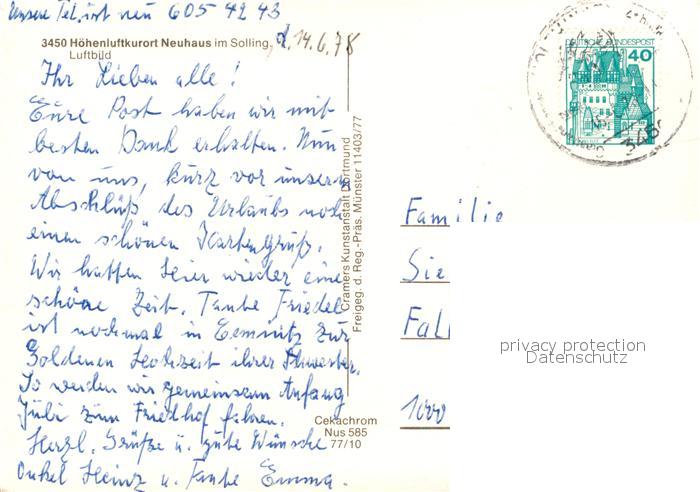 Unsere Tel. ist neu 605 42 43
3450 Höhenluftkurort Neuhaus im Solling, d. 14.6.78
Luftbild
Ihr Lieben alle!
Eure Post haben wir mit
besten Dank erhalten. Nun
von uns, kurz vor unserm
Abschluß des Urlaubs noch
einen schönen Kartengruß.
Wir hatten hier wieder eine
schöne Zeit. Tante Friedel
ist nochmal in zur
Goldenen Hochzeit ihrer Schwester.
So werden wir gemeinsam Anfang
Juli zum Friedhof fahren.
Herzl. Grüße u. gute Wünsche
Onkel Heinz u. Tante Emma.
Cramers Kunstanstalt Dortmund
Freigeg. d. Reg.-Präs. Münster 11403/77
Cekachrom
Nus 585
77/10
DEUTSCHE BUNDESPOST
40
345
Familie
Sie
Fal
1000
privacy protection
Datenschutz